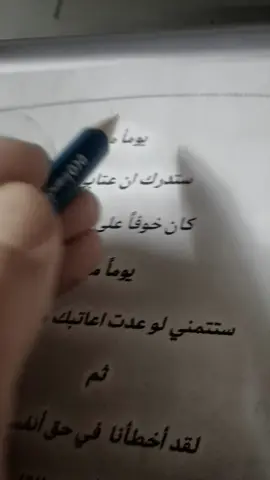 يوماً
ستدرك ان عتاب
كان خوفاً على
يوماً
ستتمني لو عدت اعاتبك
ثم
لقد أخطأنا في حق